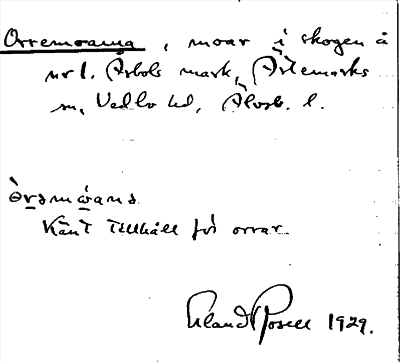 Orremoarna, moar i skogen å
nr 1. Årbols mark, Ärtemarks
sn, Vedbo hd, Älvsb. l.
òrsmóana
Känt tillhåll för orrar.
Erland Rosell 1929.